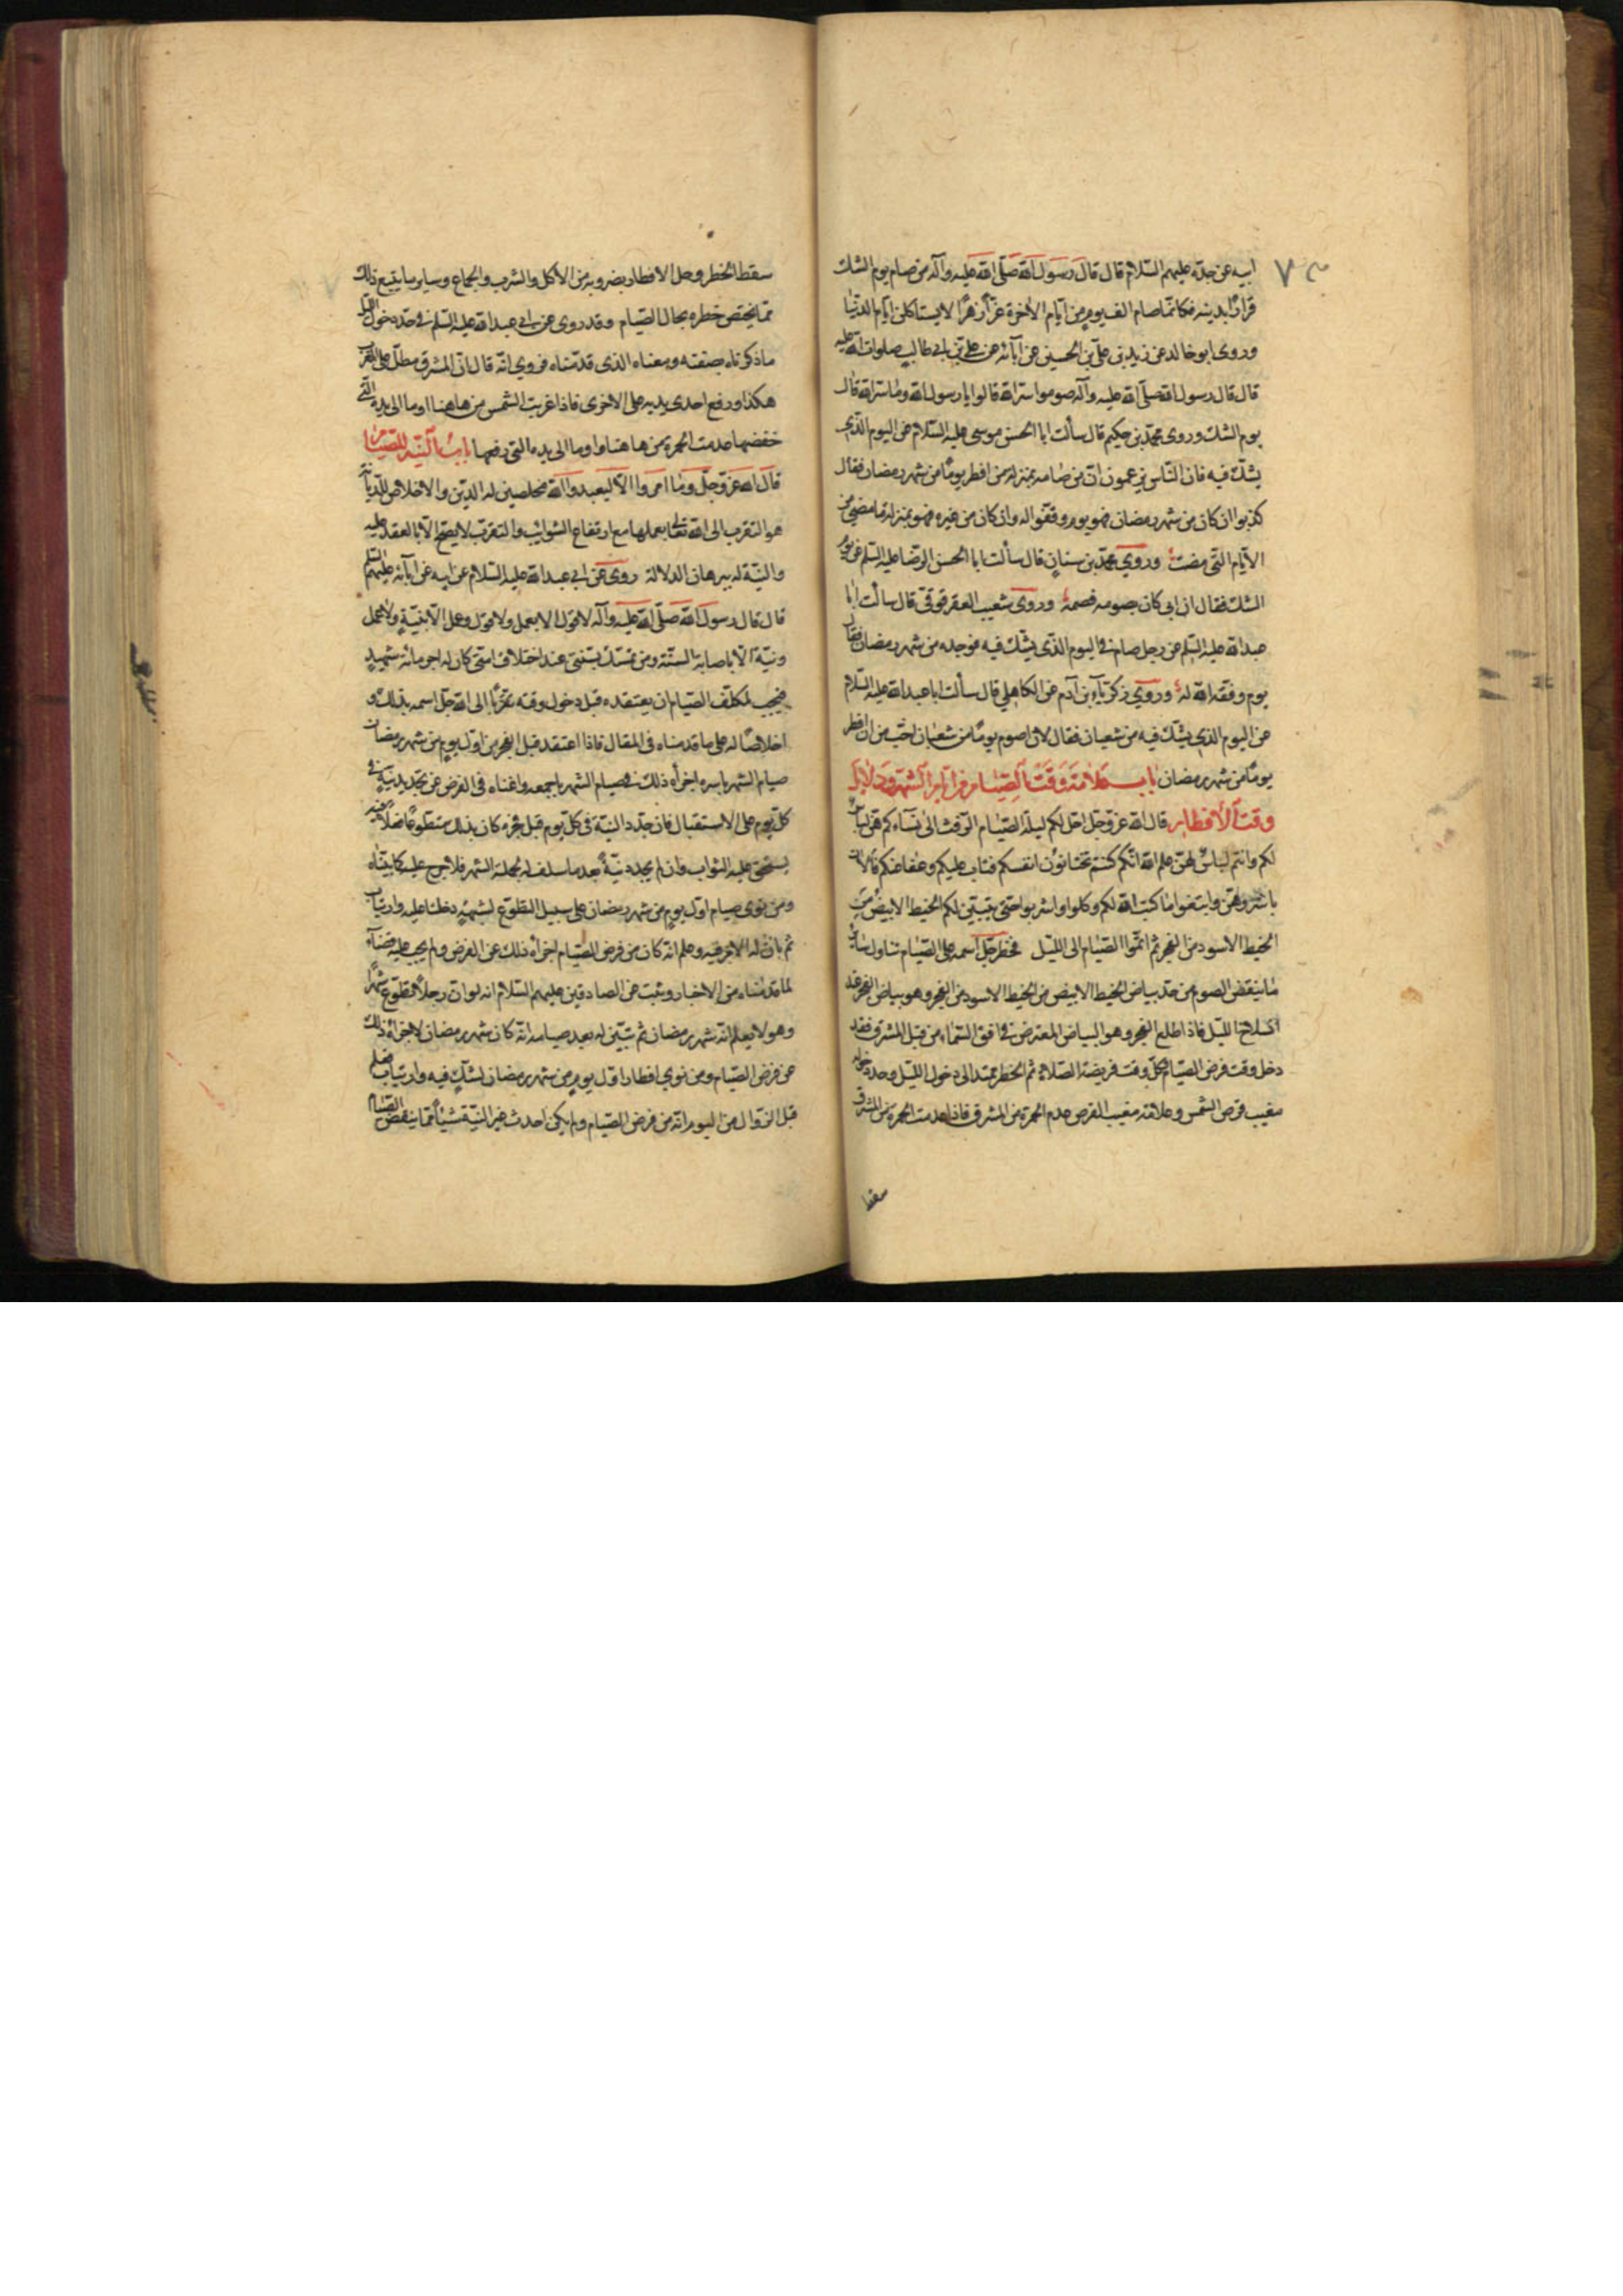 ابيه عن جده عليهم السلام قال قال رسول الله صلى الله عليه وآله من صام يوم الشك
فرارًا بدينه فكانما صام الف يوم من ايام الاخرة غرًا زهرًا لا يشاكلن ايام الدنيا
وروى ابو خالد عن زيد بن علي بن الحسين عن آبائه عن علي بن ابي طالب صلوات الله عليه
قال قال رسول الله صلى الله عليه وآله صوموا سر الله قالوا يا رسول الله وما سر الله قال
يوم الشك وروى محمد بن حكيم قال سألت ابا الحسن موسى عليه السلام عن اليوم الذي
يشك فيه فان الناس يزعمون ان من صامه بمنزلة من افطر يومًا من شهر رمضان فقال
كذبوا ان كان من شهر رمضان فهو يوم وفقوا له وان كان من غيره فهو بمنزلة ما مضى من
الايام التي مضت وروي محمد بن سنان قال سألت ابا الحسن الرضا عليه السلم عن يوم
الشك فقال ان ابي كان يصومه فصمه وروى شعيب العقرقوقي قال سألت ابا
عبد الله عليه السلم عن رجل صام في اليوم الذي يشك فيه فوجده من شهر رمضان فقال
يوم وفقه الله له وروي زكريآء بن آدم عن الكاهلي قال سألت ابا عبد الله عليه السلام
عن اليوم الذي يشك فيه من شعبان فقال لان اصوم يومًا من شعبان احب من ان افطر
يومًا من شهر رمضان باب علامة وقت الصيام من ايام الشهر ودلايل
وقت الافطار قال الله عز وجل احل لكم ليلة الصيام الرفث الى نسآءكم هن لباس
لكم وانتم لباس لهن علم الله انكم كنتم تختانون انفسكم فتاب عليكم وعفا عنكم فالان
باشروهن وابتغوا ما كتب الله لكم وكلوا واشربوا حتى يتبين لكم الخيط الابيض من
الخيط الاسود من الفجر ثم اتموا الصيام الى الليل فحظر جل اسمه على الصيام تناول ساير
ما ينقض الصوم من حد بياض الخيط الابيض من الخيط الاسود من الفجر وهو بياض الفجر عند
انسلاخ الليل فاذا طلع الفجر وهو البياض المعترض في افق السماء من قبل المشرق فقد
دخل وقت فرض الصيام وكل وقت فريضة الصلاة ثم الحظر ممتد الى دخول الليل وحده
مغيب قرص الشمس وعلامة مغيب القرص عدم الحمرة من المشرق فاذا عدمت الحمرة من المشرق
سقط
سقط الحظر وحل الافطار بضروبه من الاكل والشرب والجماع وساير ما يتبع ذلك
مما يختص حظره بحال الصيام وقد روى عن ابي عبد الله عليه السلم في حد دخول الليل
ما ذكرناه بصفته ومعناه الذي قدمناه فروي انه قال ان المشرق مطل على المغرب
هكذا ورفع احدى يديه على الاخرى فاذا غربت الشمس من هاهنا اوما الى يده التي
خفضها عدمت الحمرة من هاهنا واوما الى يده التي رفعها باب النية للصيام
قال الله عز وجل وما امروا الا ليعبدوا الله مخلصين له الدين والاخلاص للديانة
هو التقرب الى الله تعالى بعملها مع ارتفاع الشوائب والتقرب لا يصح الا بالعقد عليه
والنية له ببرهان الدلالة روى عن ابي عبد الله عليه السلام عن ابيه عن آبائه عليهم السلم
قال قال رسول الله صلى الله عليه وآله لا قول الا بعمل ولا قول وعمل الا بنية ولا عمل
ونية الا باصابة السنة ومن تمسك بسنتي عند اختلاف امتي كان له اجر مائة شهيد
فيجب لمكلف الصيام ان يعتقده قبل دخول وقته تقربًا الى الله جل اسمه بذلك و
اخلاصًا له على ما قدمناه في المقال فاذا اعتقد قبل الفجر من اول يوم من شهر رمضان
صيام الشهر باسره اجزأه ذلك في صيام الشهر باجمعه واغناه في الفرض عن تجديد نية في
كل يوم على الاستقبال فان جدد النية في كل يوم قبل فجره كان بذلك متطوعًا فعلًا
يستحق عليه الثواب وان لم يجدد نية بعد ما سلف له لجملة الشهر فلا حرج عليه كما بيناه
ومن نوى صيام اول يوم من شهر رمضان على سبيل التطوع لشبهة دخلت عليه وارتياب
ثم بان له الامر فيه وعلم انه كان من فرض الصيام اجزاه ذلك عن الفرض ولم يجب عليه قضآء
لما قدمناه من الاخبار وثبت عن الصادقين عليهم السلام انه لو ان رجلًا تطوع شهرًا
وهو لا يعلم انه شهر رمضان ثم تبين له بعد صيامه انه كان شهر رمضان لاجزاه ذلك
عن فرض الصيام ومن نوي افطار اول يوم من شهر رمضان لشك فيه وارتياب فعلم
قبل الزوال من اليوم انه من فرض الصيام ولم يكن احدث غير النية شيئًا مما ينقض الصيام